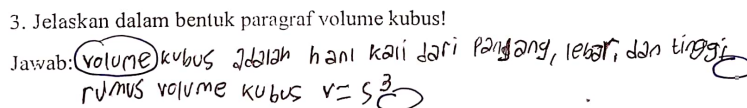 3. Jelaskan dalam bentuk paragraf volume kubus!
Jawab: volume kubus adalah hanl kali dari Pangang, lebar, dan tinggi
rumus volume kubus v = s³